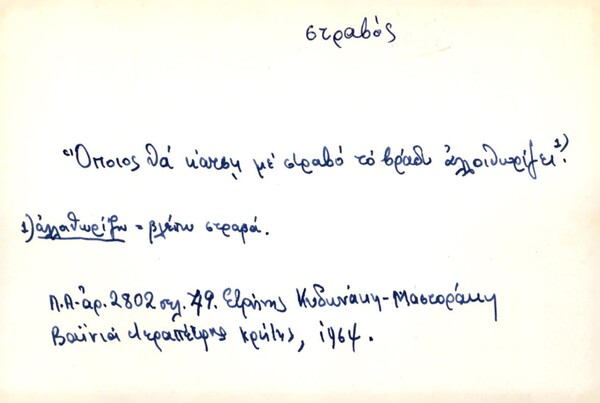 στραβός
"Όποιος θά κάτσῃ μέ στραβό τό βράδυ ἀλλοιθωρίζει".1)
1) ἀλλοιθωρίζω = βλέπω στραβά.
Λ.Α. ἀρ. 2802 σελ. 49. Εἰρήνης Κυδωνάκη-Μαστοράκη
Βαϊνιά Ἱεραπέτρης Κρήτης, 1964.